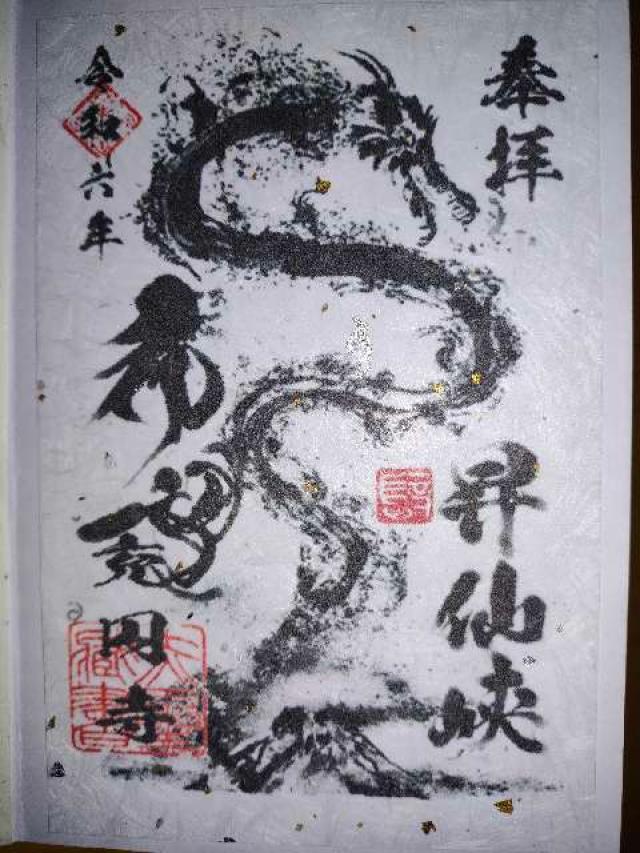 奉拝
昇仙峡
令和六年
希
円寺